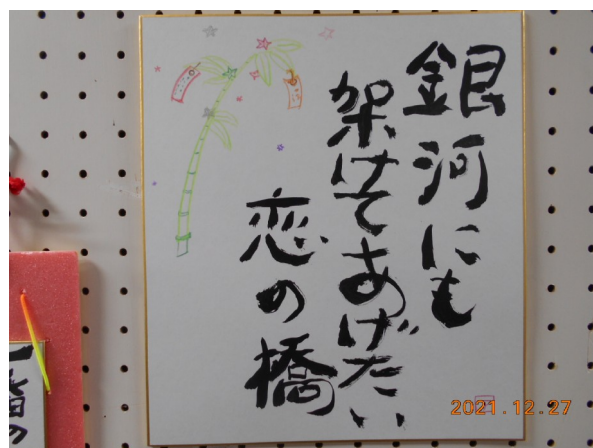 銀河にも
架けてあげたい
恋の橋
2021.12.27